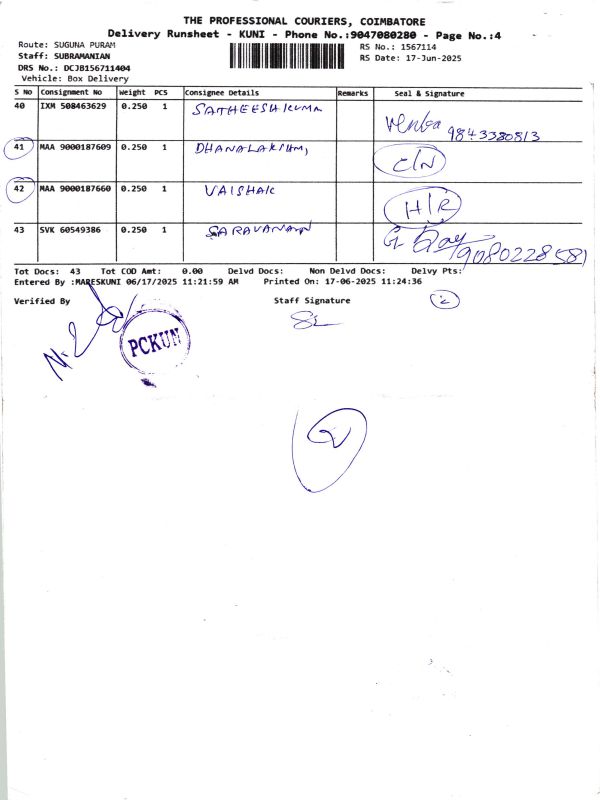 THE PROFESSIONAL COURIERS, COIMBATORE
Delivery Runsheet - KUNI - Phone No.:9047080280 - Page No.:4
Route: SUGUNA PURAM
RS No.: 1567114
Staff: SUBRAMANIAN
RS Date: 17-Jun-2025
DRS No.: DCJB156711404
Vehicle: Box Delivery
S NO Consignment No Weight PCS Consignee Details Remarks Seal & Signature
40 IXM 508463629 0.250 1 SATHEESHKUMA
9843380813
41 MAA 9000187609 0.250 1 DHANALAKSHMI C/N
42 MAA 9000187660 0.250 1 VAISHAK H/R
43 SVK 60549386 0.250 1 SARAVANAN
Tot Docs: 43 Tot COD Amt: 0.00 Delvd Docs: Non Delvd Docs: Delvy Pts:
Entered By :MARESKUNI 06/17/2025 11:21:59 AM Printed On: 17-06-2025 11:24:36
Verified By Staff Signature
PCKUN